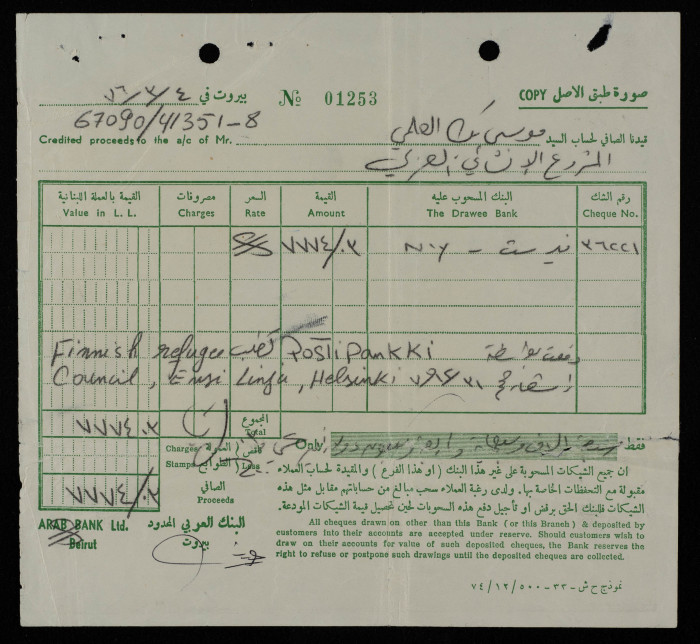 صورة طبق الاصل COPY
Nº 01253
بيروت في ٧٦/٣/٤
67090/41351-8
قيدنا الصافي لحساب السيد موسى بك العلمي
Credited proceeds to the a/c of Mr.
المشروع الإنشائي العربي
رقم الشك البنك المسحوب عليه القيمة السعر مصروفات القيمة بالعملة اللبنانية
Cheque No. The Drawee Bank Amount Rate Charges Value in L. L.
٣٦٢٢١ ٧٧٧٤/٠٣
Finnish refugee Postipankki دفعت بواسطة
Council, Helsinki
٧٧٧٤.٣ المجموع Total
فقط Only
Charges العمولة ناقص
Stamps الطوابع Less
٧٧٧٤/٠٣ الصافي
Proceeds
ان جميع الشيكات المسحوبة على غير هذا البنك ( او هذا الفرع ) والمقيدة لحساب العملاء
مقبولة مع التحفظات الخاصة بها. ولدى رغبة العملاء سحب مبالغ من حساباتهم مقابل مثل هذه
الشيكات فللبنك الحق برفض او تأجيل دفع هذه السحوبات لحين تحصيل قيمة الشيكات المودعة.
ARAB BANK Ltd. البنك العربي المحدود
Beirut بيروت
All cheques drawn on other than this Bank ( or this Branch ) & deposited by
customers into their accounts are accepted under reserve. Should customers wish to
draw on their accounts for value of such deposited cheques, the Bank reserves the
right to refuse or postpone such drawings until the deposited cheques are collected.
نموذج ح ش - ٣٣ - ٥٠٠ / ١٢ / ٧٤